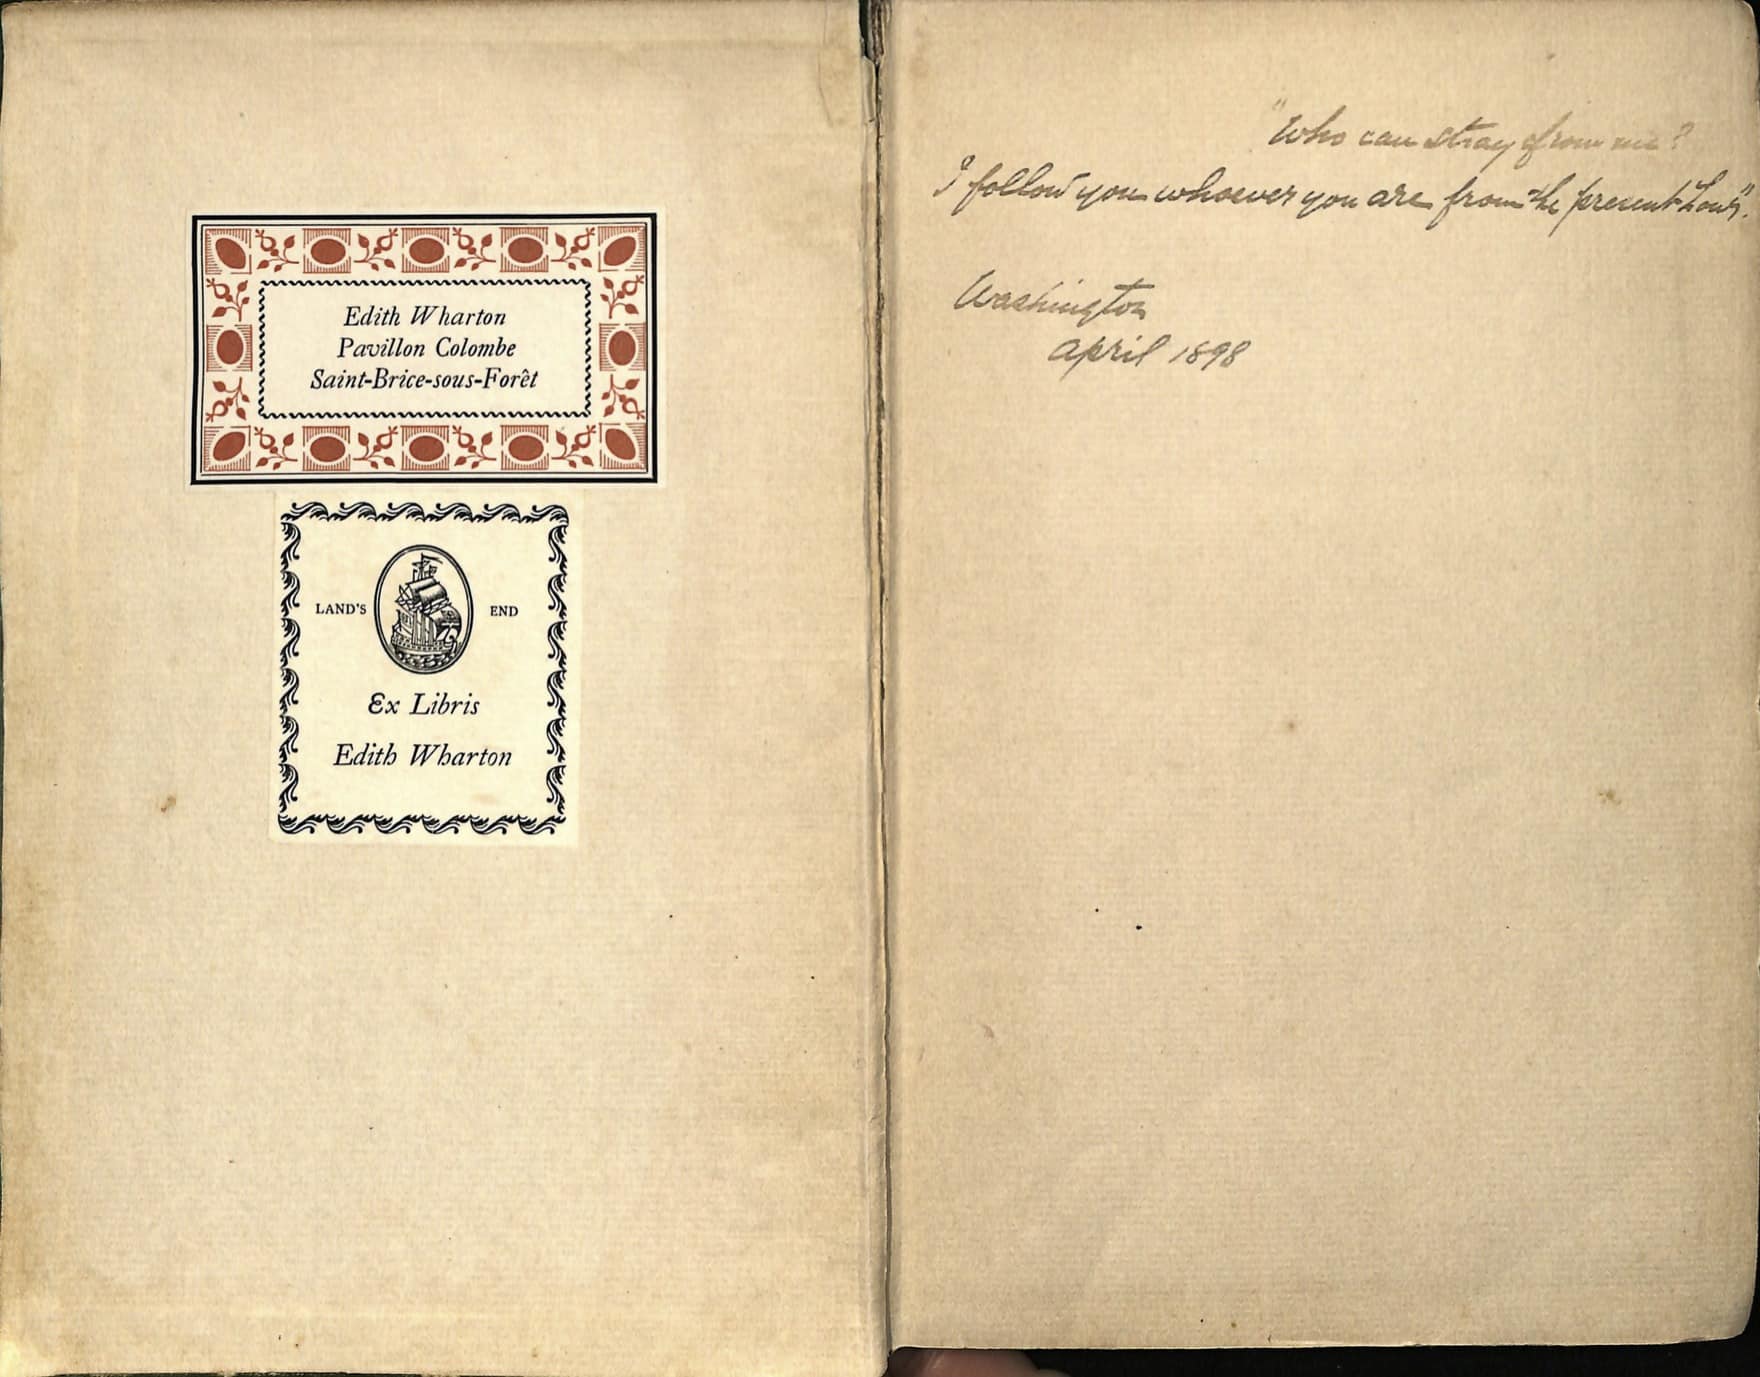 Edith Wharton
Pavillon Colombe
Saint-Brice-sous-Forêt
LAND'S END
Ex Libris
Edith Wharton
"Who can stray from me?
I follow you whoever you are from the present hour".
Washington
April 1898